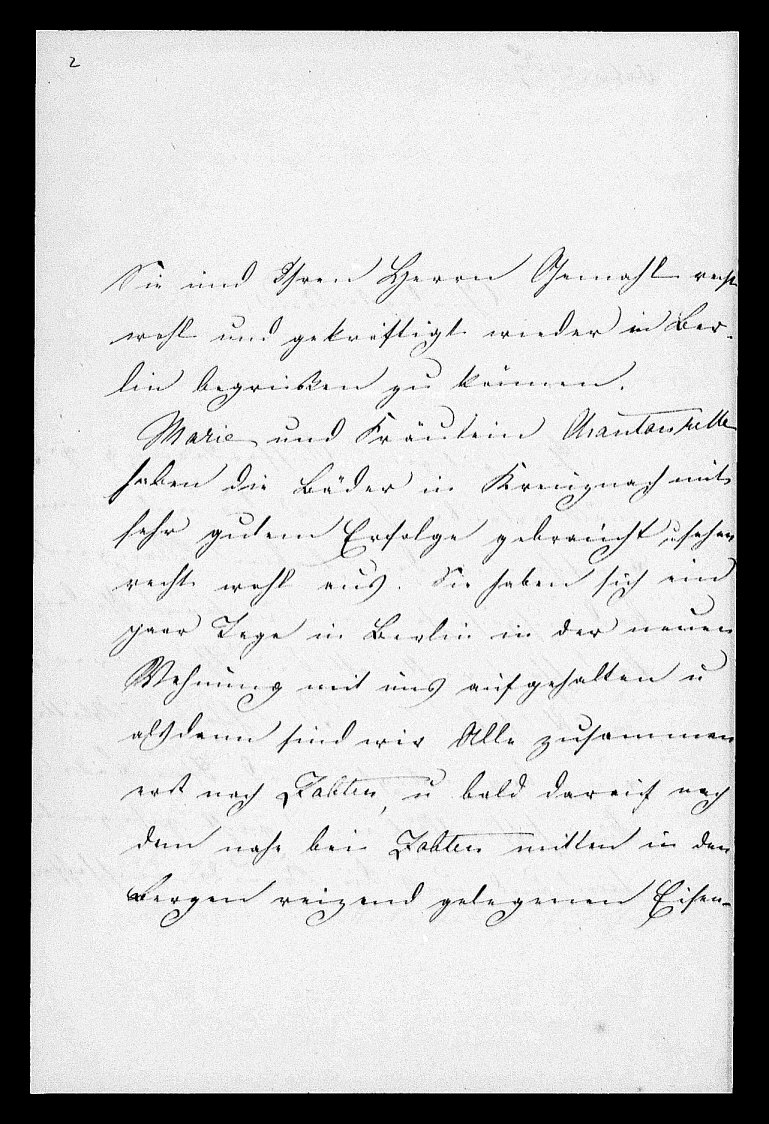 2
Sie und Ihren Herrn Gemahl recht
wohl und gekräftigt wieder in Ber-
lin begrüßen zu können.
Marie und Fräulein
haben die Bäder in Kreuznach mit
sehr gutem Erfolge gebraucht, u sehen
recht wohl aus. Sie haben sich ein
paar Tage in Berlin in der neuen
Wohnung mit uns aufgehalten u
alsdann sind wir Alle zusammen
erst nach Zobten, u bald darauf nach
dem nahe bei Zobten mitten in den
Bergen reizend gelegenen Eisen-